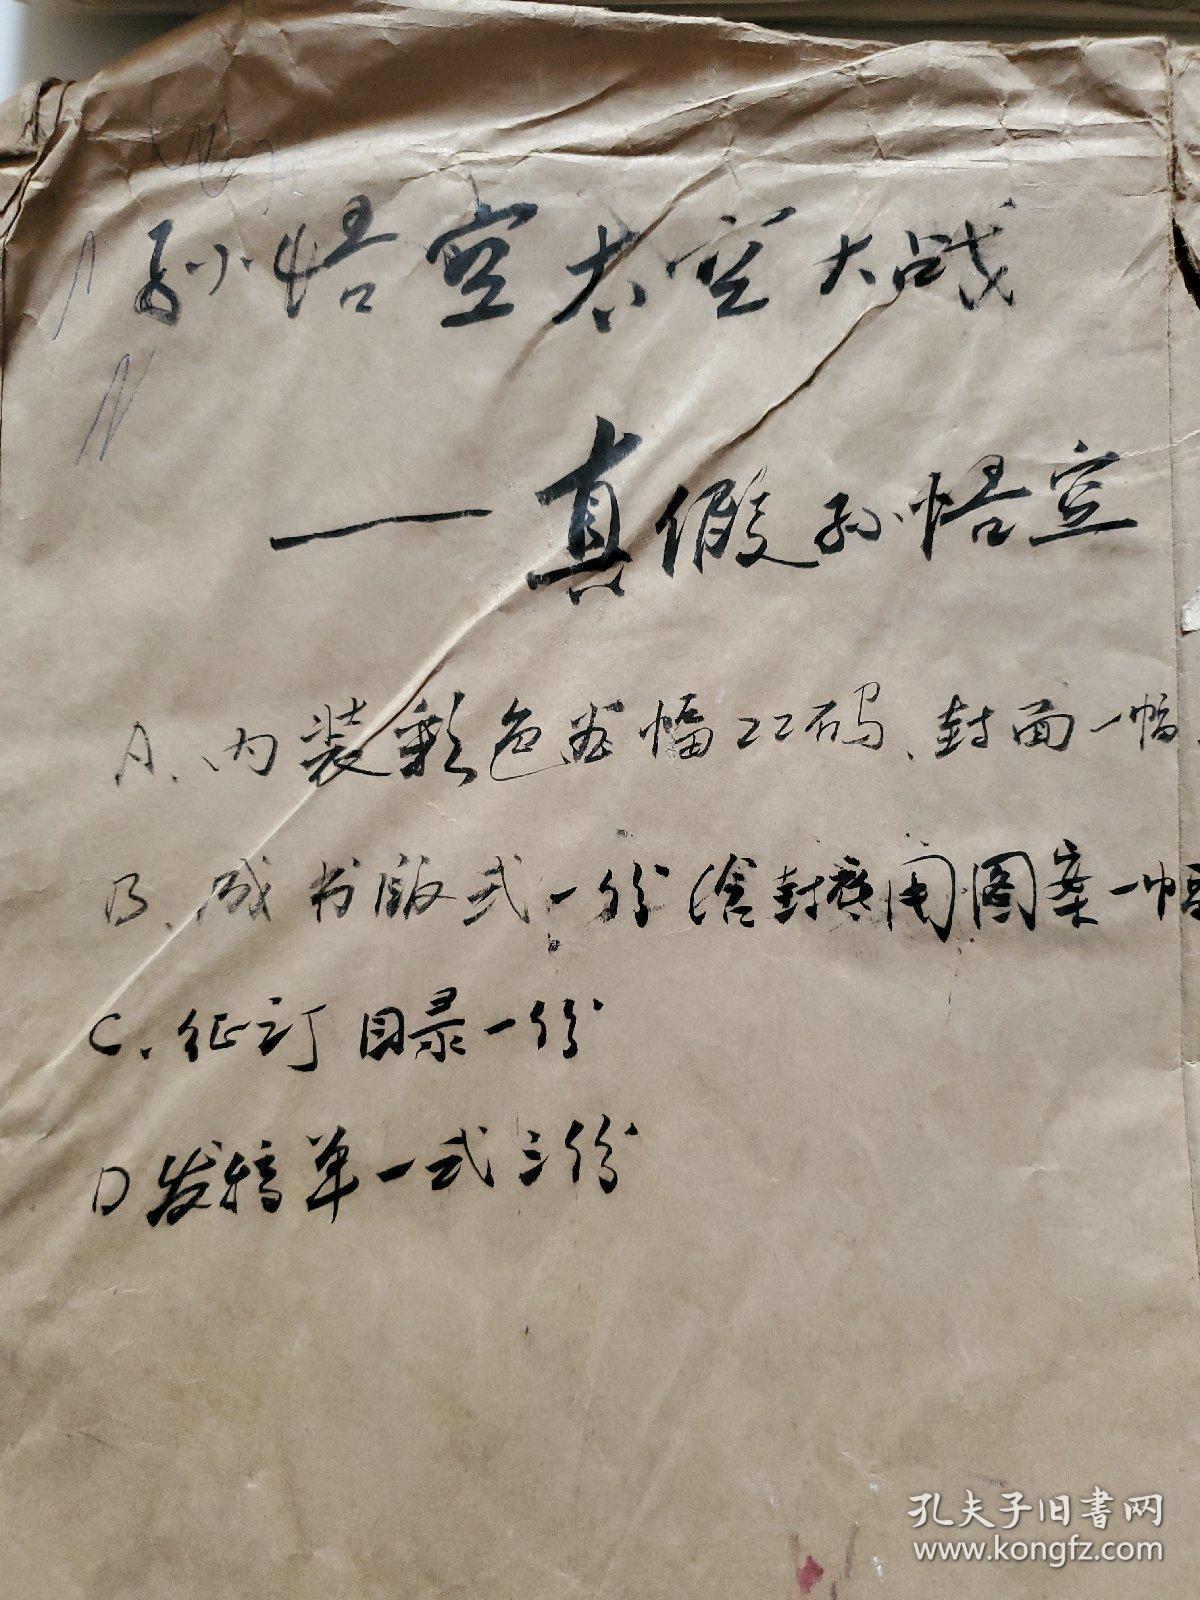 孙悟空太空大战
——真假孙悟空
A、内装彩色 幅22码、封面一幅、
B、成书版式一份(含封 用图案一幅
C、征订目录一份
D 发稿单一式三份
孔夫子旧书网
www.kongfz.com